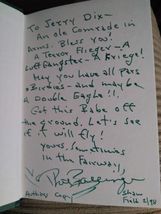 To Jerry Dix—
An ole Comrade in
Arms. Bless you!
A Terror Flieger—A
Luftgangster—A Kriege!
May you have all Pars
& Birdies—and maybe
a Double Eagle!!
Got this Babe off
the ground. Let's see
if it will fly!
yours, sometimes
in the Fairway,
Authors Copy